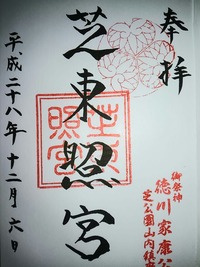 奉拝
御祭神
徳川家康公
芝公園山内鎮
芝東照宮
芝東照宮
平成二十八年十二月六日